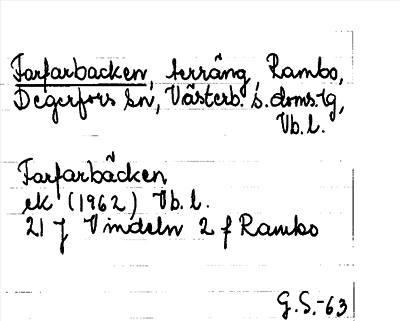 Farfarbacken, terräng, Rambo,
Degerfors sn, Västerb. s. doms.lg,
Vb. l.
Farfarbäcken
ek (1962) Vb. l.
21 J Vindeln 2 f Rambo
G.S.-63